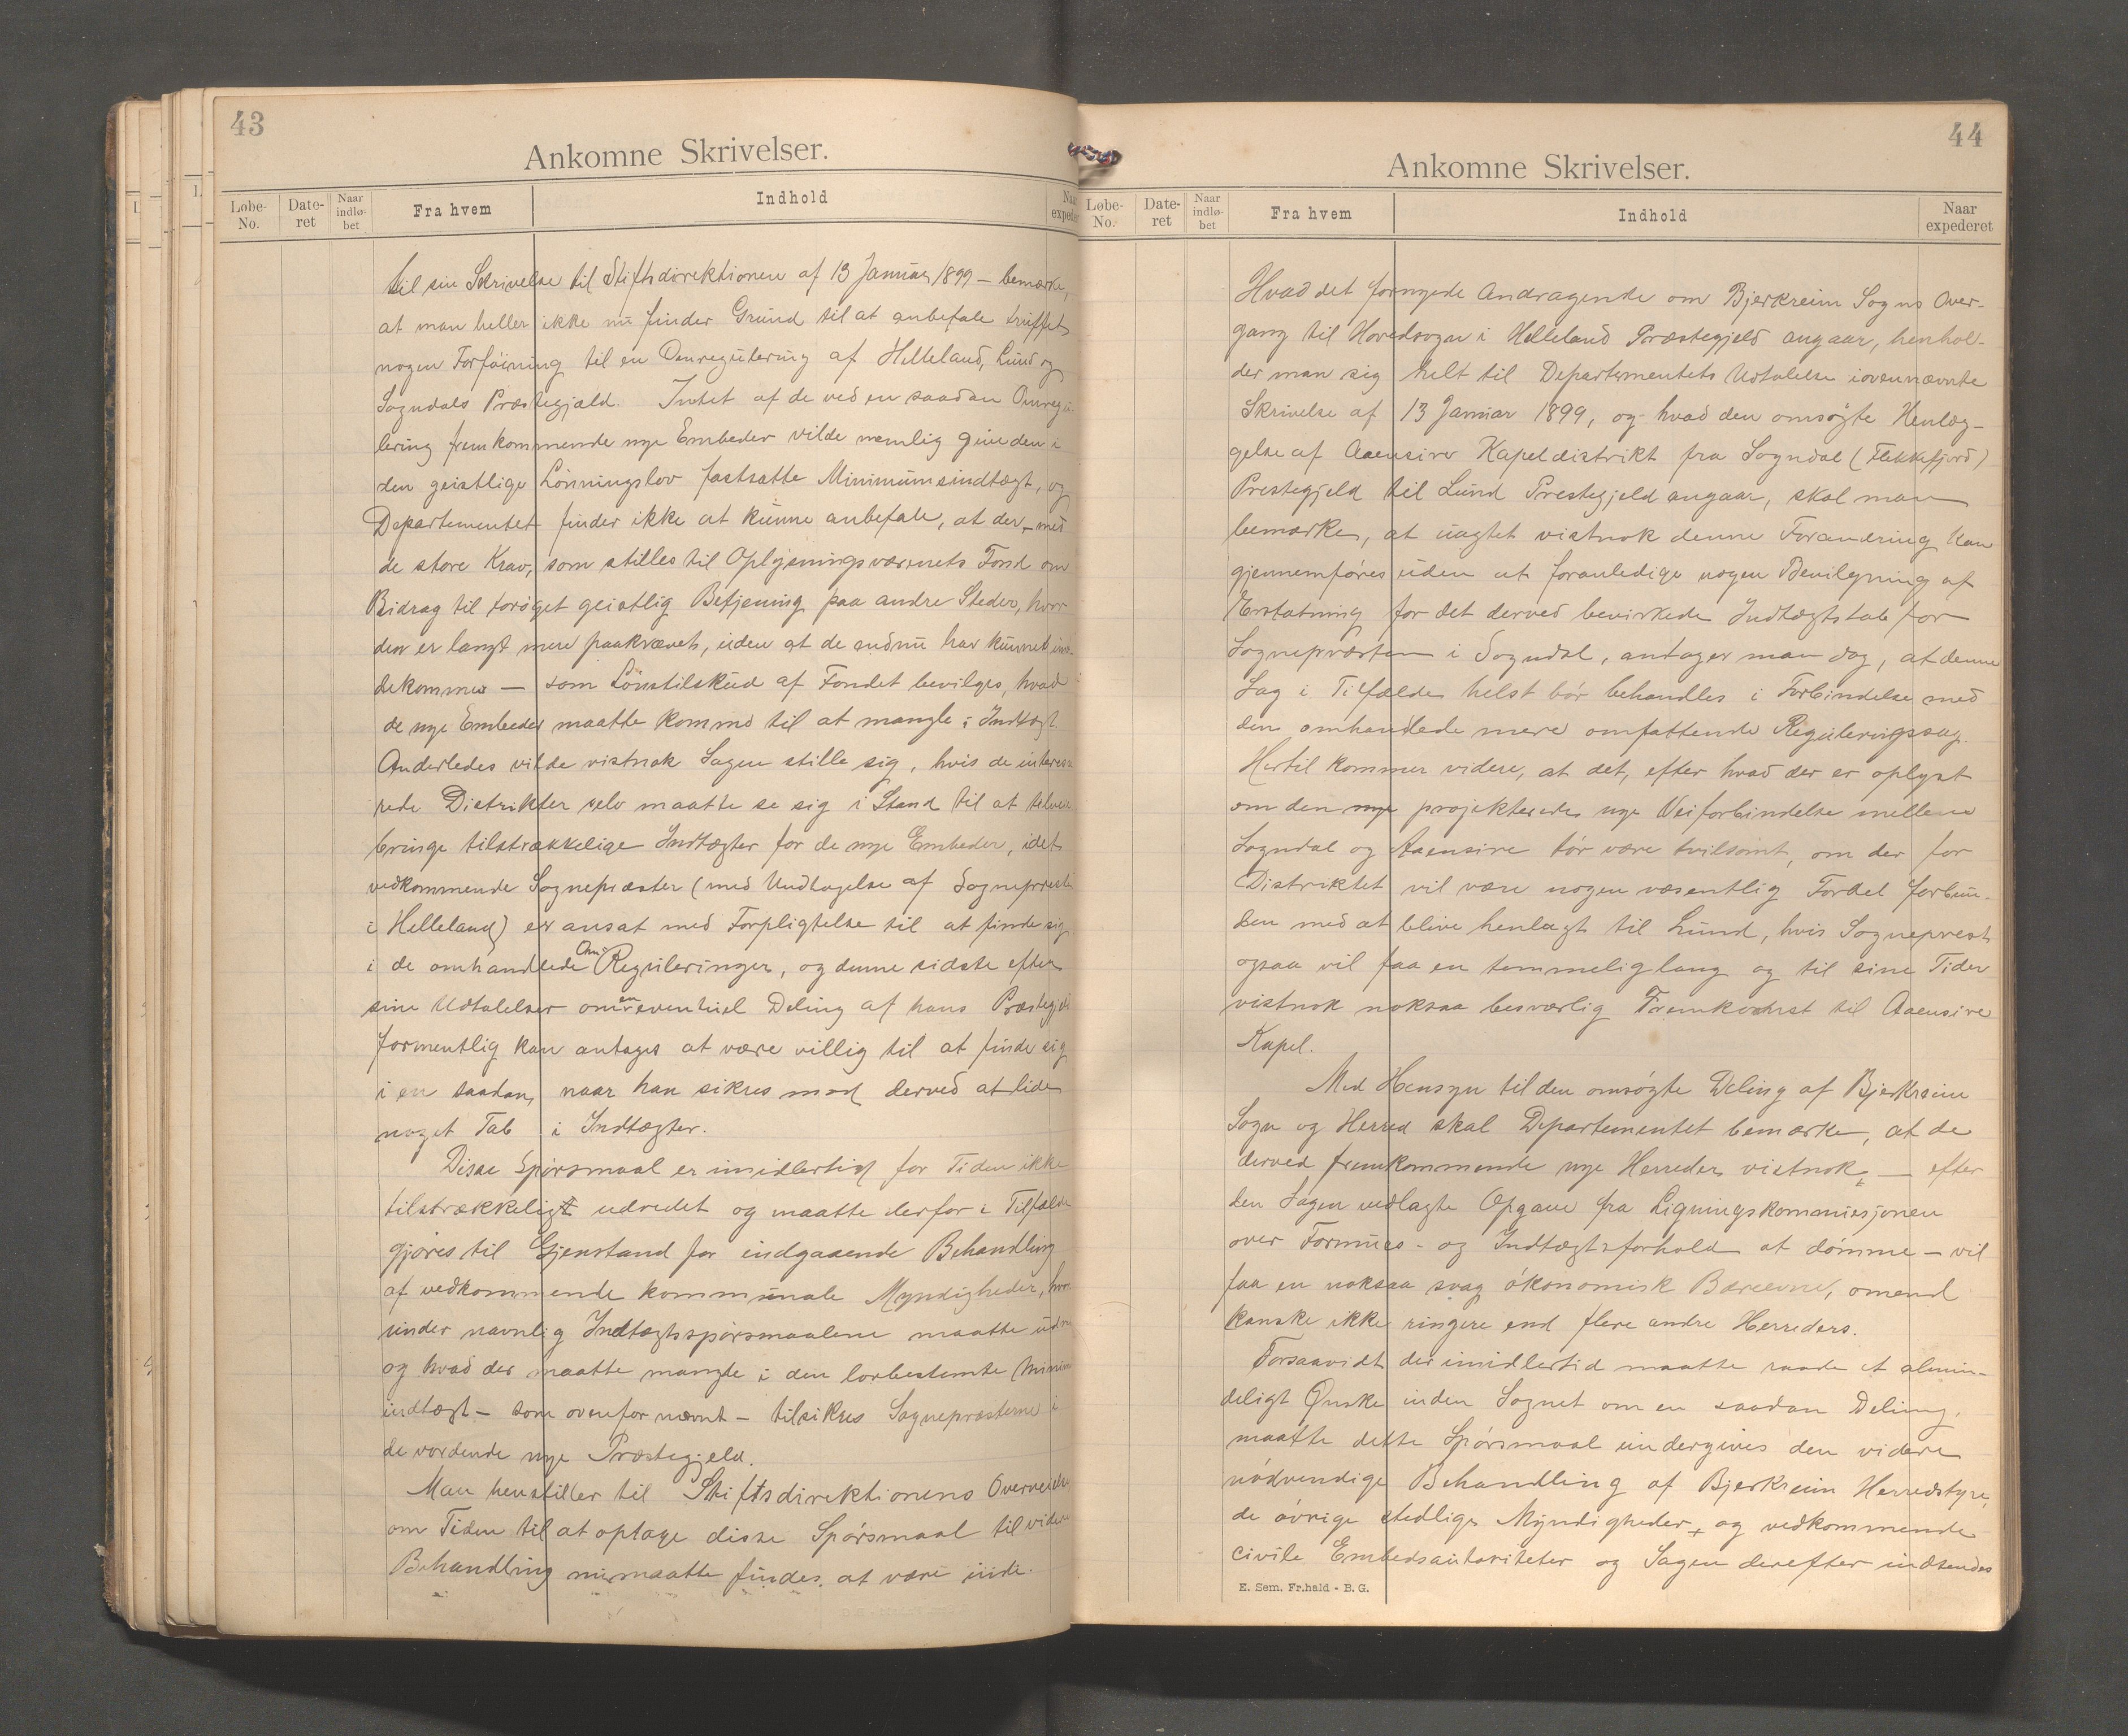 43
Ankomne Skrivelser.
Løbe-No. Date-ret Naar indlø-bet Fra hvem Indhold Naar expederet
til sin Skrivelse til Stiftsdirektionen af 13 Januar 1899 – bemærke,
at man heller ikke nu finder Grund til at anbefale truffet
nogen Forføining til en Omregulering af Helleland, Lund og
Sogndals Præstegjæld. Intet af de ved en saadan Omregu-
lering fremkommende nye Embeder vilde nemlig give den i
den geistlige Lønningslov fastsatte Minimumsindtægt, og
Departementet finder ikke at kunne anbefale, at der – med
de store Krav, som stilles til Oplysningsvæsenets Fond om
Bidrag til forøget geistlig Betjening paa andre Steder, hvor
den er langt mere paakrævet, uden at de endnu har kunnet imø-
dekommes – som Lønstilskud af Fondet bevilges, hvad
de nye Embeder maatte komme til at mangle i Indtægt.
Anderledes vilde vistnok Sagen stille sig, hvis de interesse
rede Distrikter selv maatte se sig i Stand til at tilveie
bringe tilstrækkelige Indtægter for de nye Embeder, idet
vedkommende Sognepræster (med Undtagelse af Sogneprest
i Helleland) er ansat med Forpligtelse til at finde sig
i de omhandlede Om Reguleringer, og denne sidste efter
sine Udtalelser om en eventuel Deling af hans Præstegjeld
formentlig kan antages at være villig til at finde sig
i en saadan, naar han sikres mod derved at lide
noget Tab i Indtægter.
Disse Spørsmaal er imidlertid for Tiden ikke
tilstrækkeligt udredet og maatte derfor i Tilfælde
gjøres til Gjenstand for indgaaende Behandling
af vedkommende kommunale Myndigheder, hvor
under navnlig Indtægtsspørsmaalene maatte udre
og hvad der maatte mangle i den lovbestemte Minim
indtægt – som ovenfor nævnt – tilsikres Sognepræsterne i
de vordende nye Præstegjeld.
Man henstiller til Stiftsdirektionens Overveielse
om Tiden til at optage disse Spørsmaal til videre
Behandling nu maatte findes at være inde.
44
Ankomne Skrivelser.
Løbe-No. Date-ret Naar indlø-bet Fra hvem Indhold Naar expederet
Hvad det fornyede Andragende om Bjerkreim Sogns Over-
gang til Hovedsogn i Helleland Præstegjeld angaar, henhol-
der man sig helt til Departementets Udtalelse i ovennævnte
Skrivelse af 13 Januar 1899, og hvad den omsøgte Henlæg-
gelse af Aaensire Kapeldistrikt fra Sogndal (Flekkefjord)
Prestegjeld til Lund Prestegjeld angaar, skal man
bemærke, at uagtet vistnok denne Forandring kan
gjennemføres uden at foranledige nogen Bevilgning af
Erstatning for det derved bevirkede Indtægtstab for
Sognepræsten i Sogndal, antager man dog, at denne
Sag i Tilfælde helst bør behandles i Forbindelse med
den omhandlede mere omfattende Reguleringssag.
Hertil kommer videre, at det, efter hvad der er oplyst
om den nye projekterede nye Veiforbindelse mellem
Sogndal og Aaensire tør være tvilsomt, om der for
Distriktet vil være nogen væsentlig Fordel forbun-
den med at blive henlagt til Lund, hvis Sogneprest
ogsaa vil faa en temmelig lang og til sine Tider
vistnok noksaa besværlig Fremkomst til Aaensire
Kapel.
Med Hensyn til den omsøgte Deling af Bjerkreim
Sogn og Herred skal Departementet bemærke, at de
derved fremkommende nye Herreder vistnok, – efter
den Sagen vedlagte Opgave fra Ligningskommissjonen
over Formues- og Indtægtsforhold at dømme – vil
faa en noksaa svag økonomisk Bæreevne, omend
kanske ikke ringere end flere andre Herreders.
Forsaavidt der imidlertid maatte raade et almin-
deligt Ønske inden Sognet om en saadan Deling,
maatte dette Spørsmaal undergives den videre
nødvendige Behandling af Bjerkreim Herredstyre,
de øvrige stedlige Myndigheder, og vedkommende
civile Embedsautoriteter og Sagen derefter indsendes
E. Sem. Fr.hald - B. G.